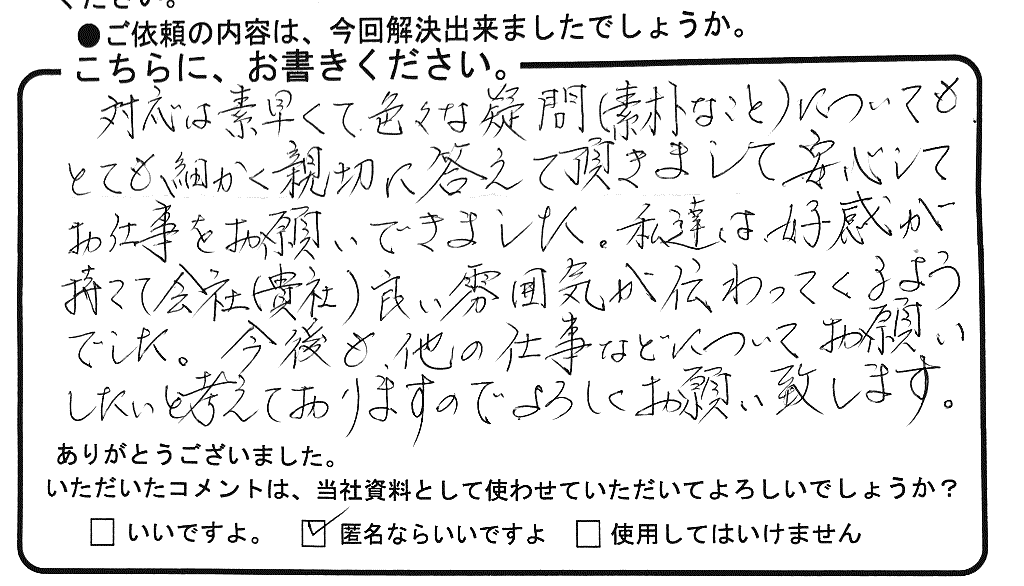 ください。
●ご依頼の内容は、今回解決出来ましたでしょうか。
こちらに、お書きください。
対応は素早くて色々な疑問(素朴なこと)についても
とても細かく親切に答えて頂きまして安心して
お仕事をお願いできました。私達は好感が
持てて会社(貴社)良い雰囲気が伝わってくるよう
でした。今後も他の仕事などについてお願い
したいと考えておりますのでよろしくお願い致します。
ありがとうございました。
いただいたコメントは、当社資料として使わせていただいてよろしいでしょうか?
□ いいですよ。 ☑ 匿名ならいいですよ □ 使用してはいけません